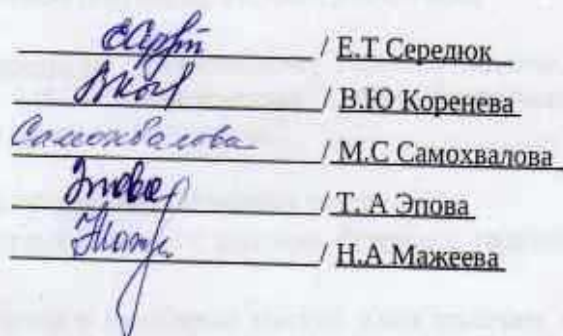 / Е.Т Середюк
/ В.Ю Коренева
Самохвалова / М.С Самохвалова
/ Т. А Эпова
/ Н.А Мажеева